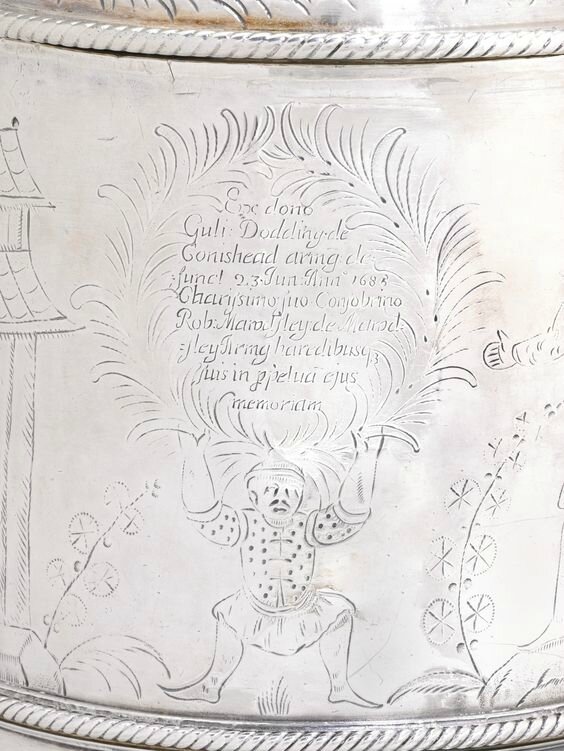 Ex dono
Guli: Dodding de
Conishead armg de=
:funct 23 Jun: Ann° 1683
Charissimo suo Consobrino
Rob: Mawdsley de Mawd=
:sley Armg hæredibusqȝ
suis in ppetuā ejus
memoriam